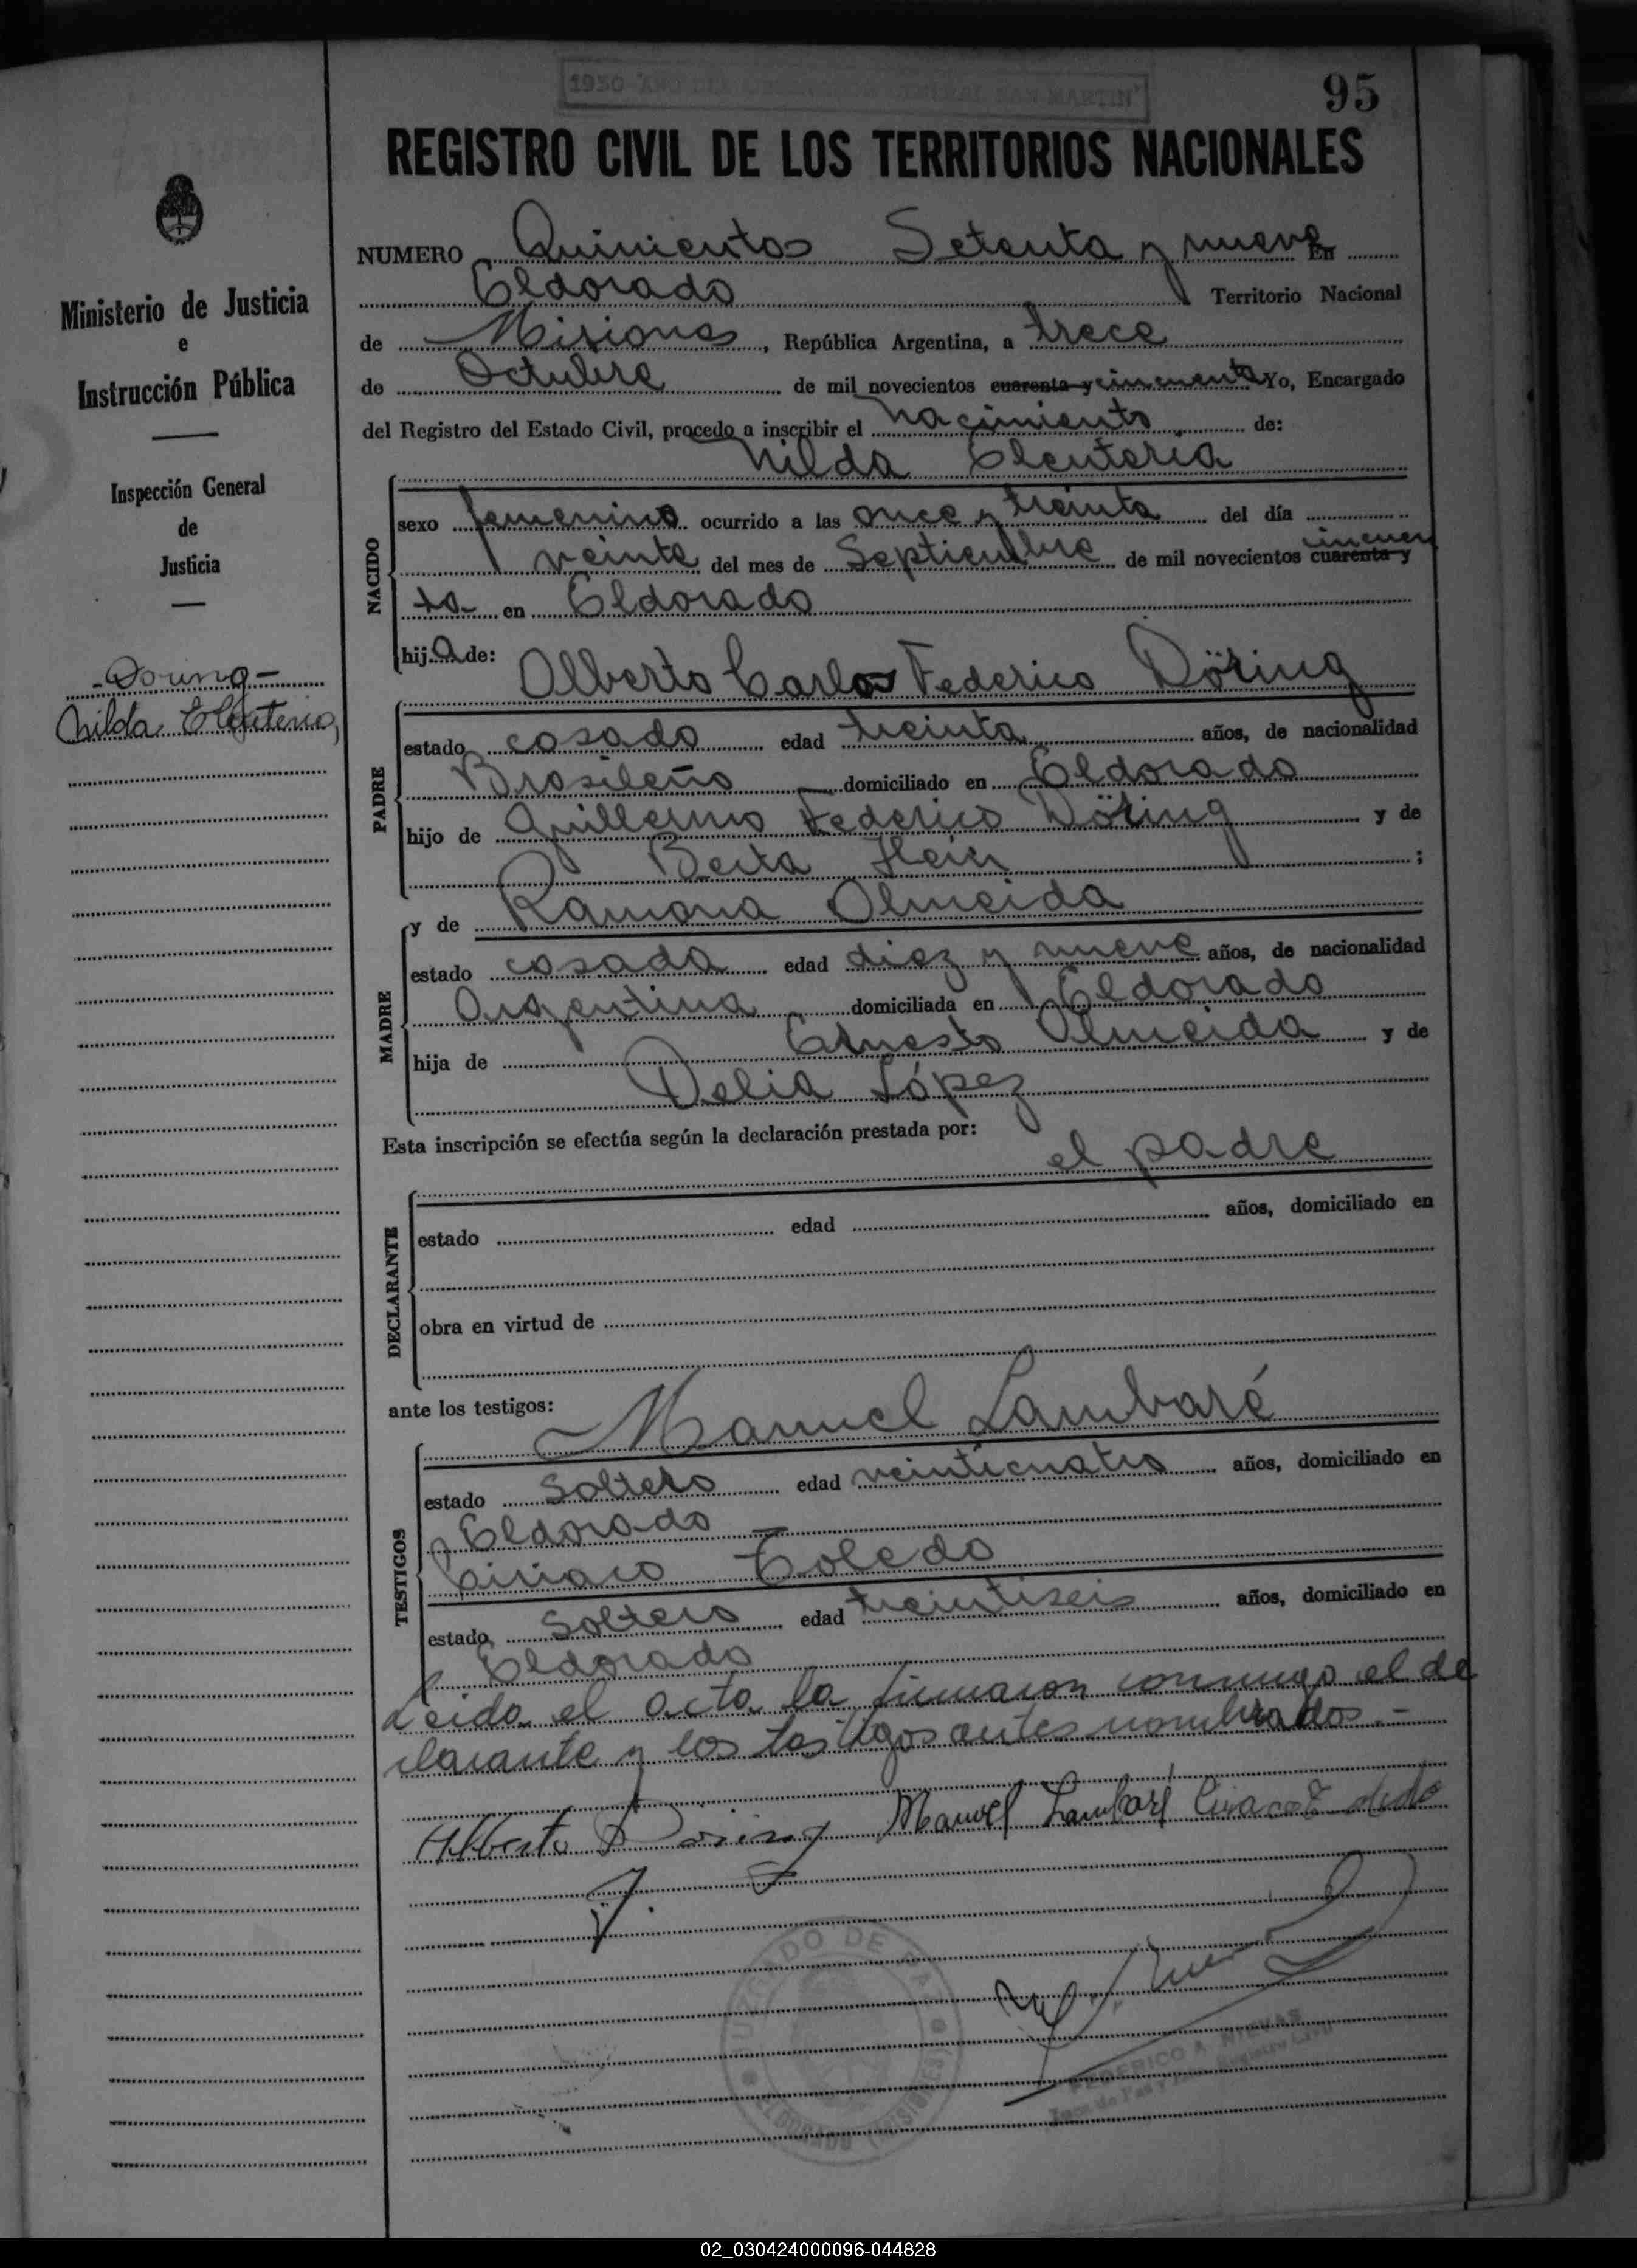 1950 AÑO DEL LIBERTADOR GENERAL SAN MARTIN
95
REGISTRO CIVIL DE LOS TERRITORIOS NACIONALES
Ministerio de Justicia
e
Instrucción Pública
Inspección General
de
Justicia
- Doring -
Nilda Eleuteria
NUMERO Quinientos Setenta y nueve En
Eldorado Territorio Nacional
de Misiones, República Argentina, a trece
de Octubre de mil novecientos cuarenta y cincuenta Yo, Encargado
del Registro del Estado Civil, procedo a inscribir el nacimiento de:
Nilda Eleuteria
NACIDO
sexo femenino ocurrido a las once y treinta del día
veinte del mes de Septiembre de mil novecientos cuarenta y cincuen
ta en Eldorado
hija de:
Alberto Carlos Federico Döring
PADRE
estado casado edad treinta años, de nacionalidad
Brasileño domiciliado en Eldorado
hijo de Guillermo Federico Döring y de
Berta Hein;
y de Ramona Olmeida
MADRE
estado casada edad diez y nueve años, de nacionalidad
Argentina domiciliada en Eldorado
hija de Ernesto Olmeida y de
Delia López
Esta inscripción se efectúa según la declaración prestada por:
el padre
DECLARANTE
estado edad años, domiciliado en
obra en virtud de
ante los testigos:
Manuel Lambaré
TESTIGOS
estado Soltero edad veinticuatro años, domiciliado en
Eldorado
Ciriaco Toledo
estado Soltero edad treintiseis años, domiciliado en
Eldorado
Leida el acta la firmaron conmigo el de
clarante y los testigos antes nombrados.-
Alberto Döring Manuel Lambaré Ciriaco Toledo
JUZGADO DE PAZ
ELDORADO (MISIONES)
FEDERICO A. NIEVAS
Juez de Paz y Registro Civil
02_030424000096-044828